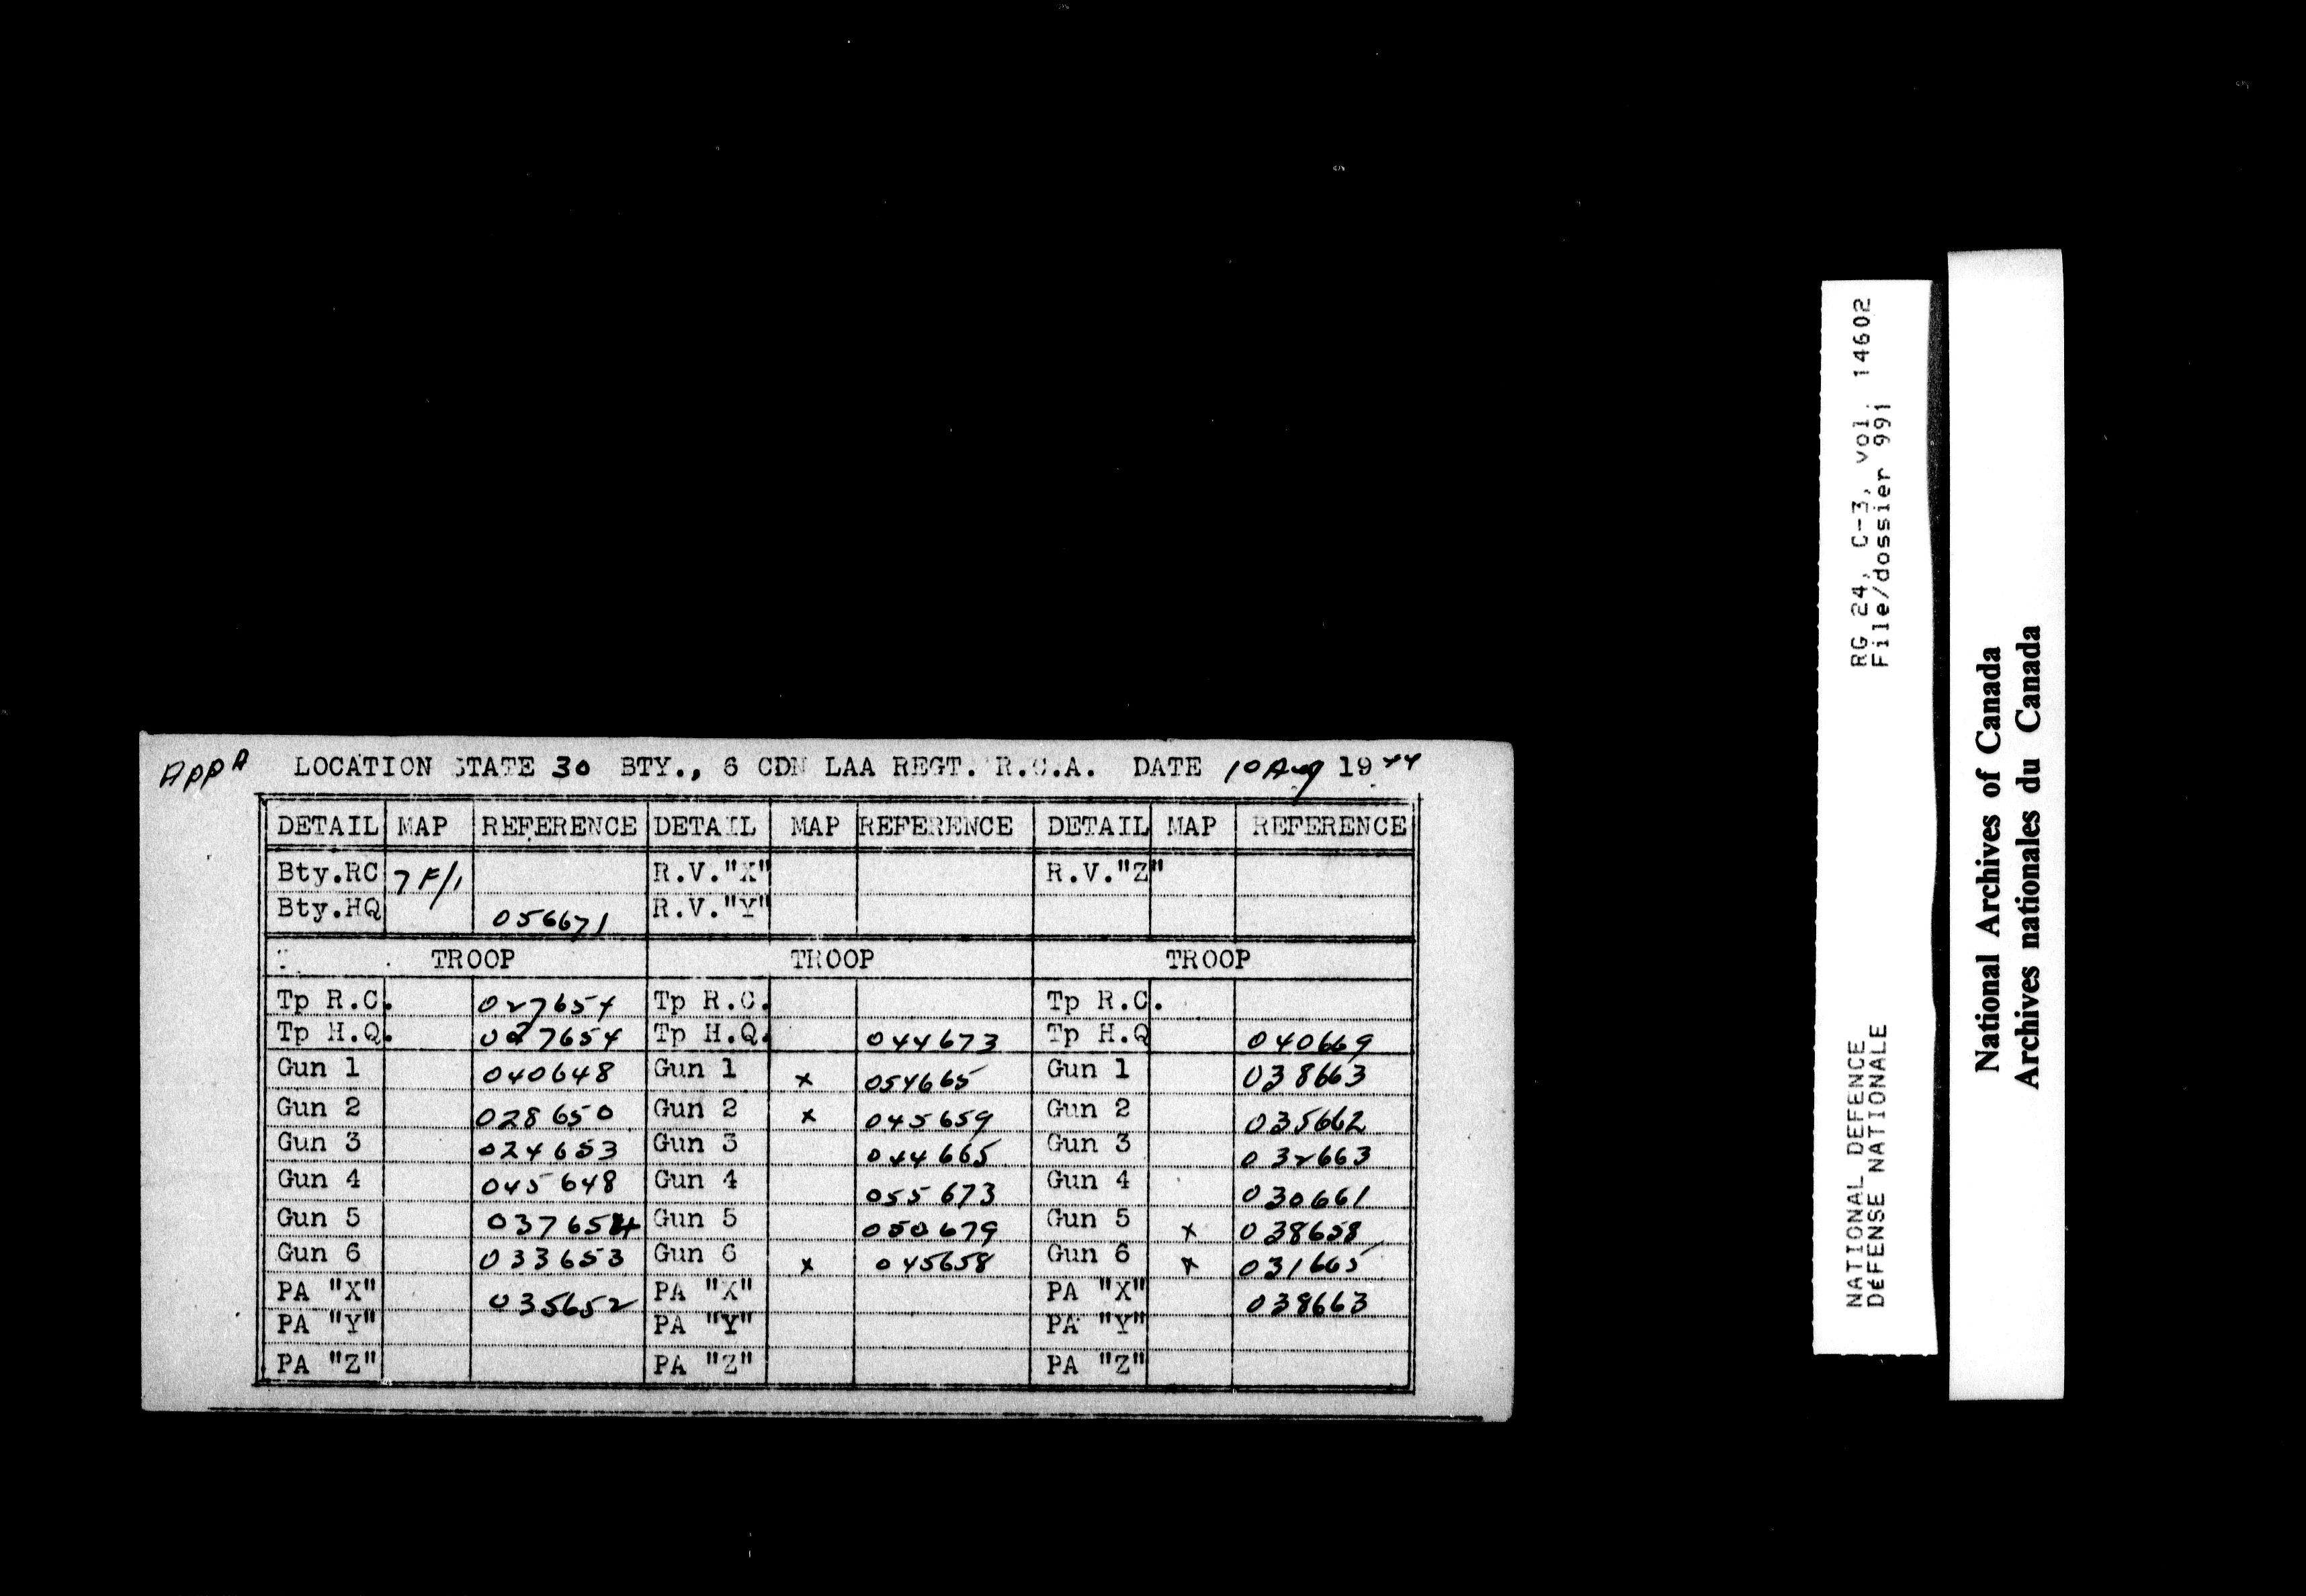 App A LOCATION STATE 30 BTY., 6 CDN LAA REGT. R.C.A. DATE 10 Aug 1944
DETAIL MAP REFERENCE DETAIL MAP REFERENCE DETAIL MAP REFERENCE
Bty.RC 7F/1 R.V."X" R.V."Z"
Bty.HQ 056671 R.V."Y"
TROOP TROOP TROOP
Tp R.C. 027654 Tp R.C. Tp R.C.
Tp H.Q. 027654 Tp H.Q. 044673 Tp H.Q 040669
Gun 1 040648 Gun 1 x 054665 Gun 1 038663
Gun 2 028650 Gun 2 x 045659 Gun 2 035662
Gun 3 024653 Gun 3 044665 Gun 3 032663
Gun 4 045648 Gun 4 055673 Gun 4 030661
Gun 5 037654 Gun 5 050679 Gun 5 x 038658
Gun 6 033653 Gun 6 x 045658 Gun 6 x 031665
PA "X" 035652 PA "X" PA "X" 038663
PA "Y" PA "Y" PA "Y"
PA "Z" PA "Z" PA "Z"
NATIONAL DEFENCE RG 24, C-3, vol. 14602
DéFENSE NATIONALE File/dossier 991
National Archives of Canada
Archives nationales du Canada